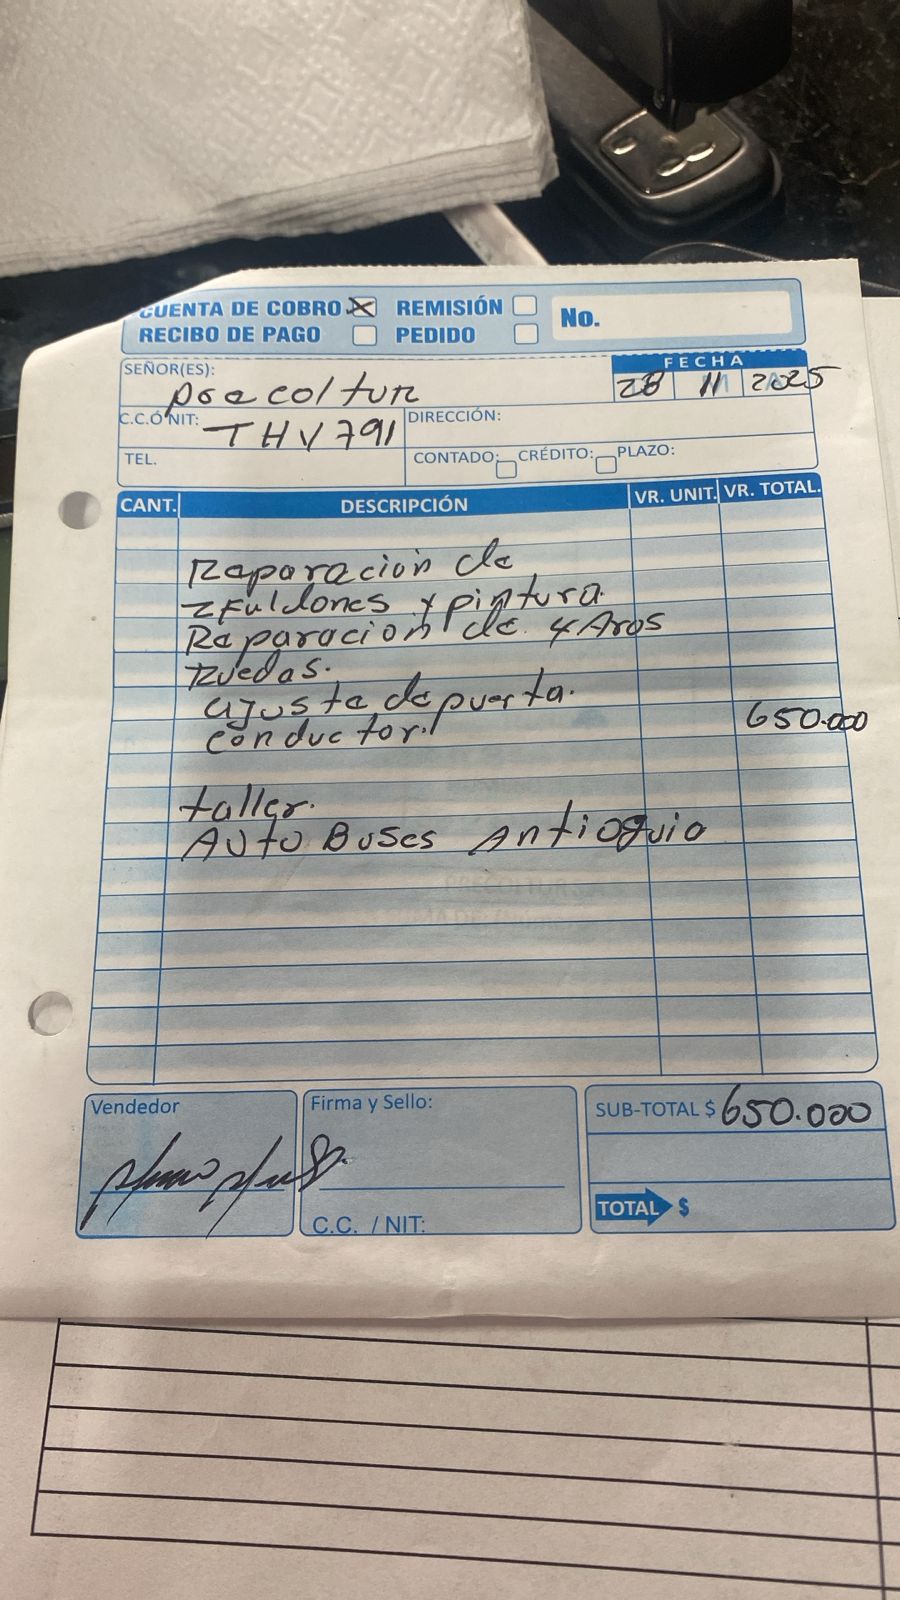 CUENTA DE COBRO X REMISIÓN
RECIBO DE PAGO PEDIDO
No.
SEÑOR(ES): precoltur
FECHA
28 11 2025
C.C.Ó NIT: THV791 DIRECCIÓN:
TEL. CONTADO: CRÉDITO: PLAZO:
CANT. DESCRIPCIÓN VR. UNIT. VR. TOTAL.
Reparacion de
2 Fuldones y pintura.
Reparacion de 4 Aros
Ruedas.
ajuste de puerta.
conductor. 650.000
taller.
Auto Buses Antioquia
PRECOLTUR
Vendedor Firma y Sello: SUB-TOTAL $ 650.000
C.C. / NIT: TOTAL $